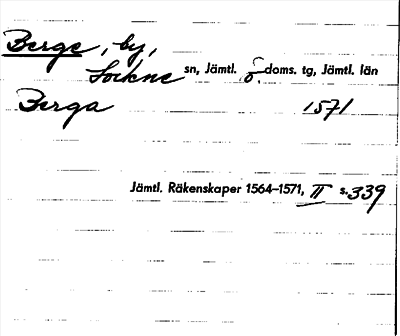 Berge, by,
Lockne sn, Jämtl. ö. doms. tg, Jämtl. län
Berga 1571
Jämtl. Räkenskaper 1564–1571, II s. 339